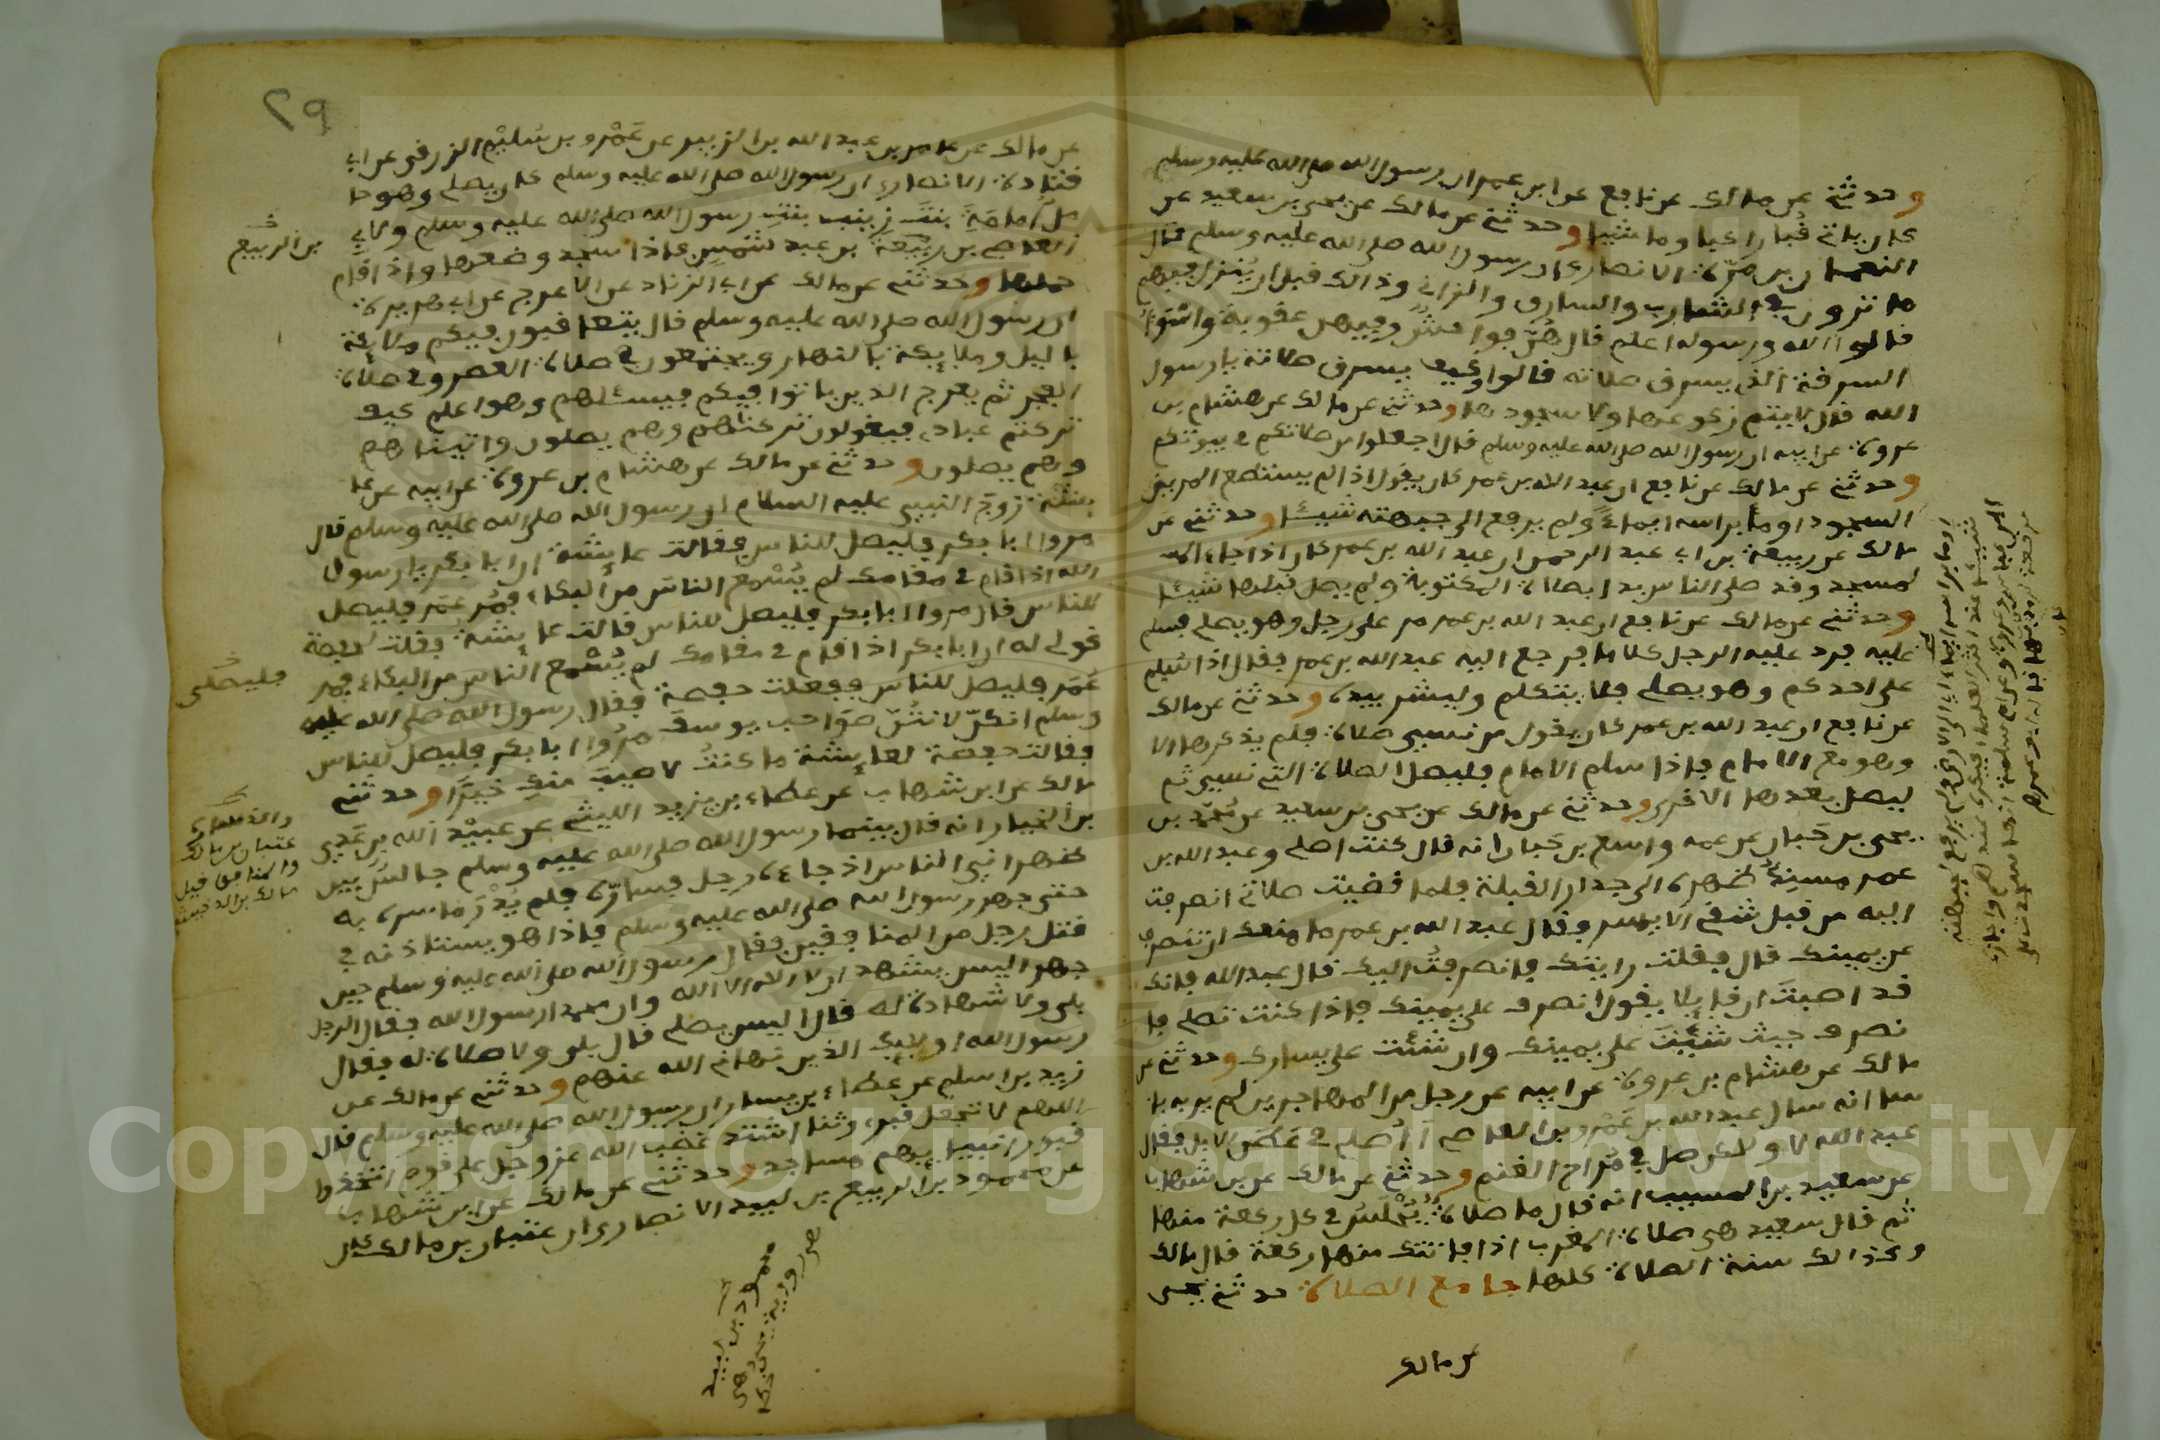 وحدثني عن مالك عن نافع عن ابن عمر ان رسول الله صلى الله عليه وسلم
كان ياتي قباء راكبا وماشيا وحدثني عن مالك عن يحيى بن سعيد عن
النعمان بن مرة الانصاري ان رسول الله صلى الله عليه وسلم قال
ما ترون في الشارب والسارق والزاني وذالك قبل ان ينزل فيهم
قالوا الله ورسوله اعلم قال هن فواحش وفيهن عقوبة واسوأ
السرقة الذي يسرق صلاته قالوا وكيف يسرق صلاته يا رسول
الله قال لا يتم ركوعها ولا سجودها وحدثني عن مالك عن هشام بن
عروة عن ابيه ان رسول الله صلى الله عليه وسلم قال اجعلوا من صلاتكم في بيوتكم
وحدثني عن مالك عن نافع ان عبد الله بن عمر كان يقول اذا لم يستطع المريض
السجود اومأ براسه ايماء ولم يرفع الى جبهته شيئا وحدثني عن
مالك عن ربيعة بن ابي عبد الرحمن ان عبد الله بن عمر كان اذا جاء ا
لمسجد وقد صلى الناس بدا بصلاة المكتوبة ولم يصل قبلها شيئا
وحدثني عن مالك عن نافع ان عبد الله بن عمر مر على رجل وهو يصلي فسلم
عليه فرد عليه الرجل كلاما فرجع اليه عبد الله بن عمر فقال اذا سلم
على احدكم وهو يصلي فلا يتكلم وليشر بيده وحدثني عن مالك
عن نافع ان عبد الله بن عمر كان يقول من نسي صلاة فلم يذكرها الا
وهو مع الامام فاذا سلم الامام فليصل الصلاة التي نسي ثم
ليصل بعدها الاخرى وحدثني عن مالك عن يحيى بن سعيد عن محمد بن
يحيى بن حبان عن عمه واسع بن حبان انه قال كنت اصلي وعبد الله بن
عمر مسند ظهره الى جدار القبلة فلما قضيت صلاتي انصرفت
اليه من قبل شقي الايسر فقال عبد الله بن عمر ما منعك ان تنصرف
عن يمينك قال فقلت رايتك فانصرفت اليك قال عبد الله فانك
قد اصبت ان قايلا يقول انصرف على يمينك فاذا كنت تصلي فا
نصرف حيث شئت على يمينك وان شئت على يسارك وحدثني عن
مالك عن هشام بن عروة عن ابيه عن رجل من المهاجرين لم ير به با
سا انه سال عبد الله بن عمرو بن العاصي أأصلي في عطن الابل فقال
عبد الله لا ولاكن صل في مراح الغنم وحدثني عن مالك عن بن شهاب
عن سعيد بن المسيب انه قال ما صلاة يجلس في كل ركعة منها
ثم قال سعيد هي صلاة المغرب اذا فاتتك منها ركعة قال مالك
وكذالك سنة الصلاة كلها جامع الصلاة حدثني يحيى
عن مالك
٢٩
عن مالك عن عامر بن عبد الله بن الزبير عن عمرو بن سليم الزرقي عن ابي
قتادة الانصاري ان رسول الله صلى الله عليه وسلم كان يصلي وهو حا
مل امامة بنت زينب بنت رسول الله صلى الله عليه وسلم ولابي
العاصي بن ربيعة بن عبد شمس فاذا سجد وضعها واذا قام
بن الربيع
حملها وحدثني عن مالك عن ابي الزناد عن الاعرج عن ابي هريرة
ان رسول الله صلى الله عليه وسلم قال يتعاقبون فيكم ملايكة
باليل وملايكة بالنهار ويجتمعون في صلاة العصر وفي صلاة
الفجر ثم يعرج الذين باتوا فيكم فيسئلهم وهو اعلم كيف
تركتم عبادي فيقولون تركناهم وهم يصلون واتيناهم
وهم يصلون وحدثني عن مالك عن هشام بن عروة عن ابيه عن عا
يشة زوج النبي عليه السلام ان رسول الله صلى الله عليه وسلم قال
مروا ابا بكر فليصل للناس فقالت عايشة ان ابا بكر يا رسول
الله اذا قام في مقامك لم يسمع الناس من البكاء فمر عمر فليصل
للناس قال مروا ابا بكر فليصل للناس قالت عايشة فقلت لحفصة
قولي له ان ابا بكر اذا قام في مقامك لم يسمع الناس من البكاء فمر
عمر فليصل للناس ففعلت حفصة فقال رسول الله صلى الله عليه
وسلم انكن لانتن صواحب يوسف مروا ابا بكر فليصل للناس
فقالت حفصة لعايشة ما كنت لاصيب منك خيرا وحدثني
مالك عن ابن شهاب عن عطاء بن يزيد الليثي عن عبيد الله بن عدي
بن الخيار انه قال بينما رسول الله صلى الله عليه وسلم جالس بين
ظهراني الناس اذ جاءه رجل فساره فلم يدر ما سره به
حتى جهر رسول الله صلى الله عليه وسلم فاذا هو يستاذنه في
قتل رجل من المنافقين فقال رسول الله صلى الله عليه وسلم حين
جهر اليس يشهد ان لا اله الا الله وان محمدا رسول الله فقال الرجل
بلى ولا شهادة له قال اليس يصلي قال بلى ولا صلاة له فقال
رسول الله اولايك الذين نهاني الله عنهم وحدثني عن مالك عن
زيد بن اسلم عن عطاء بن يسار ان رسول الله صلى الله عليه وسلم قال
اللهم لا تجعل قبري وثنا اشتد غضب الله عز وجل على قوم اتخذوا
قبور انبيايهم مساجد وحدثني عن مالك عن ابن شهاب
عن محمود بن الربيع بن لبيد الانصاري ان عتبان بن مالك كان
محمود بن لبيد
Copyright © King Saud University